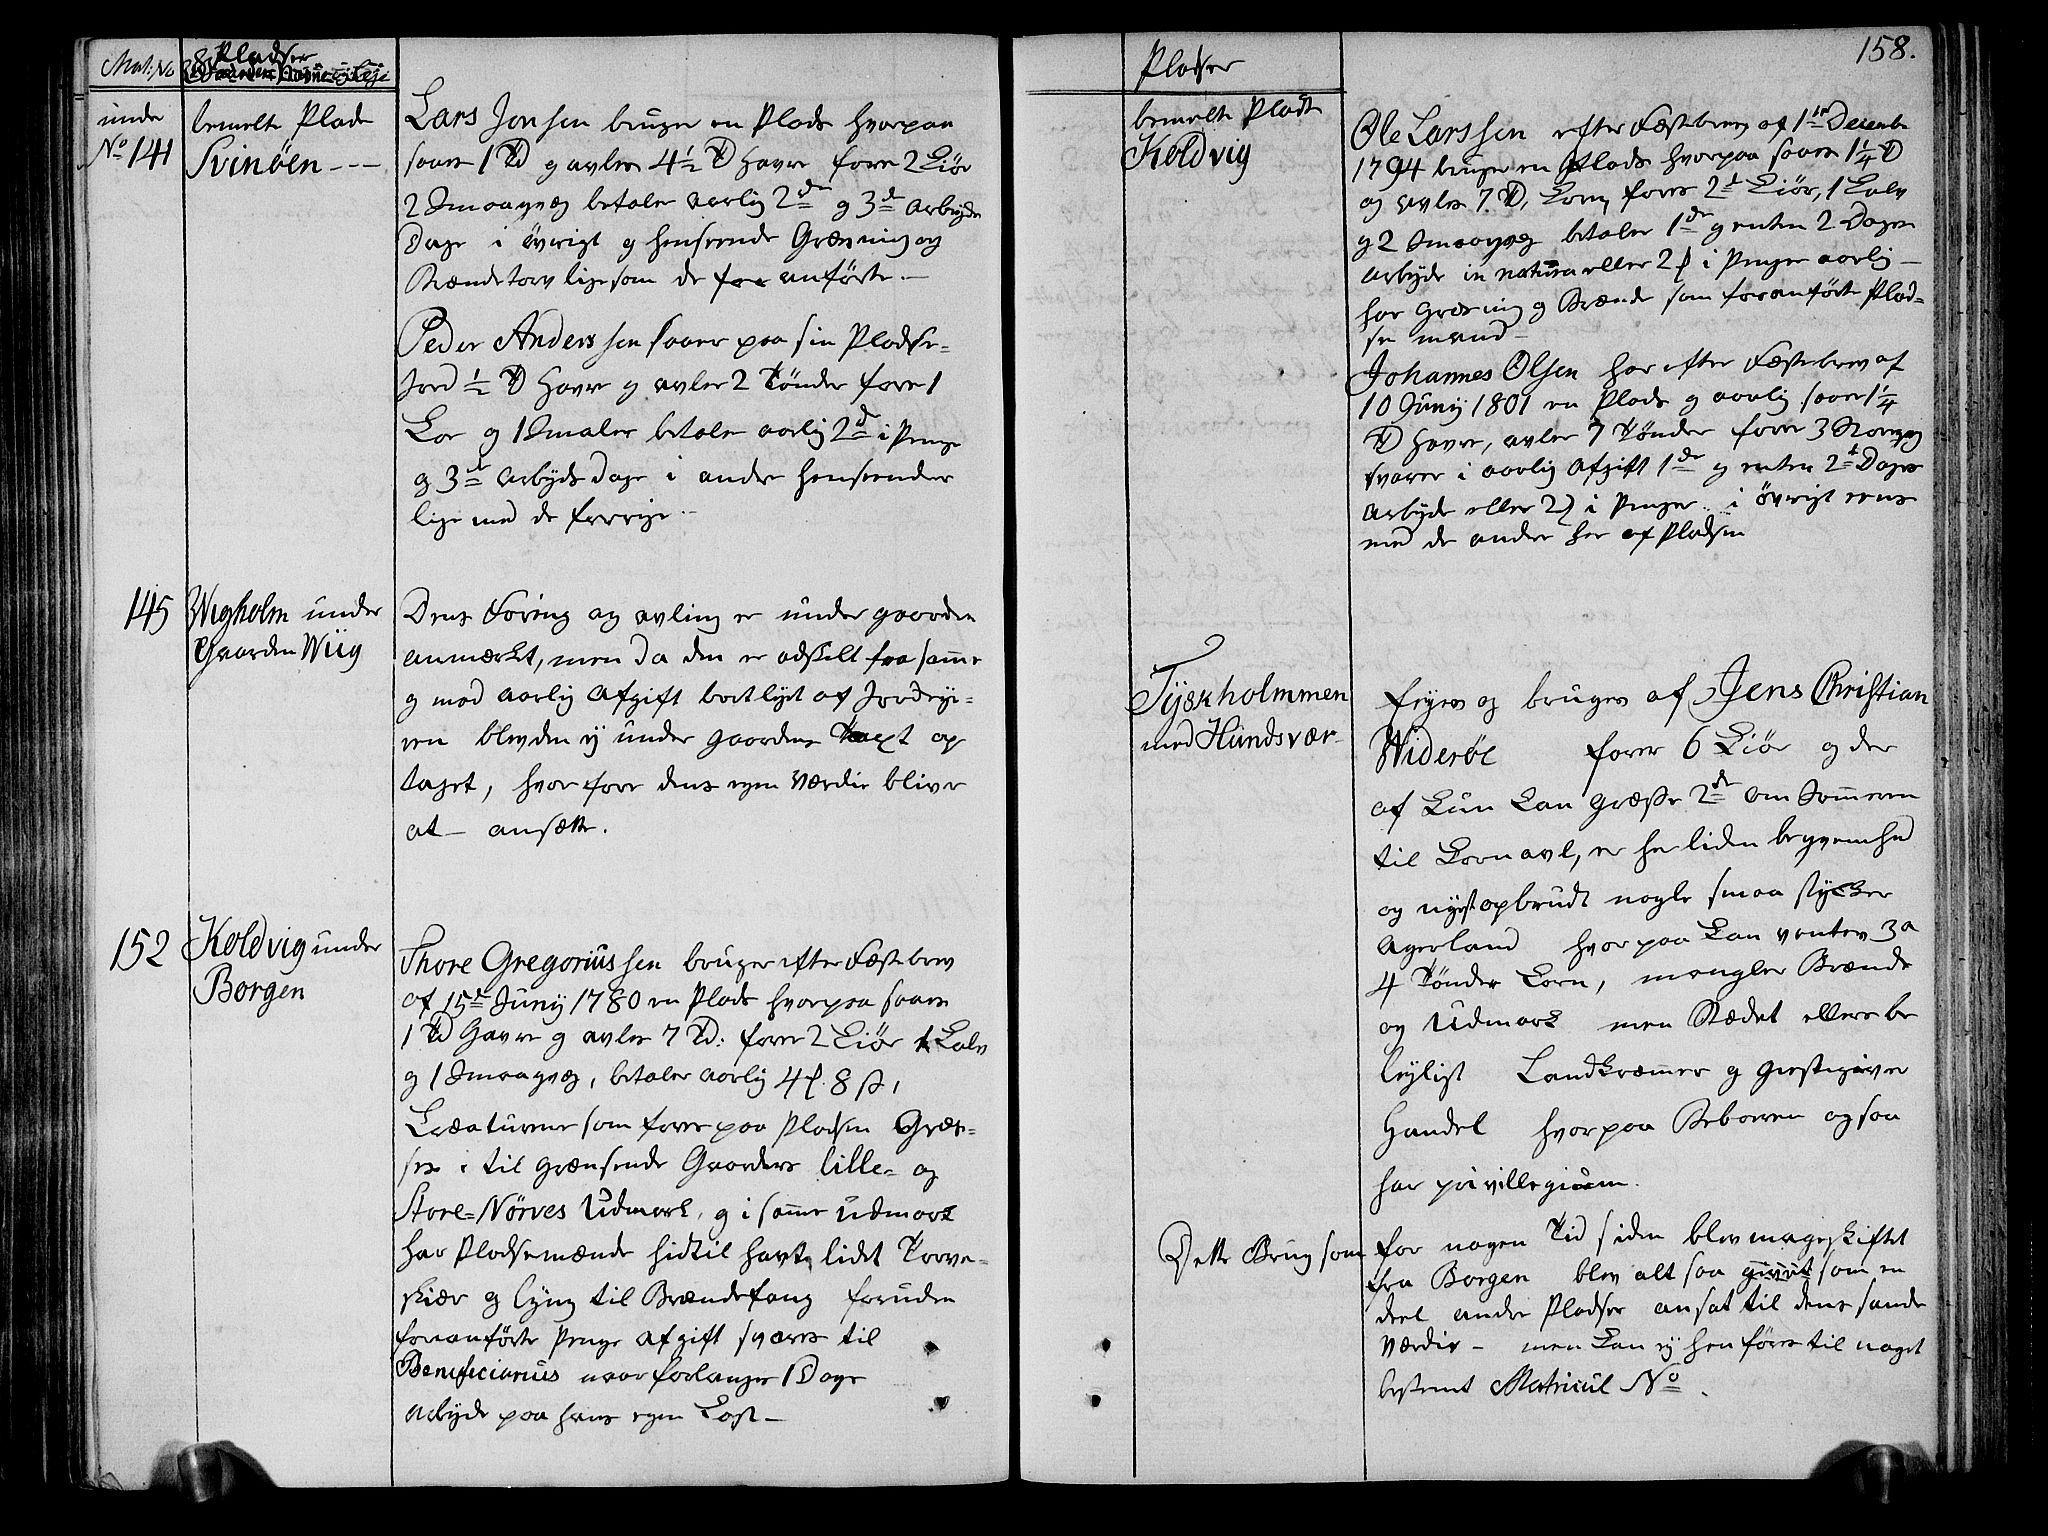 Mat: No
Pladser
under
No 141
bemelte Plads
Svinöen - - -
Lars Jonsen bruger en Plads hvorpaa
saaes 1 Td og avles 4½ Td Havre foer 2 Kiör
2 Smaaqvæg betaler aarlig 2 rd og 3 de Arbeyds
Dage i övrigt og henseende Græsning og
Brændetorv ligesom de for anförte. —
Peder Anderssen saaer paa sin Pladse-
Jord ½ Td Havre og avler 2 Tönder foer 1
Koe og 1 Smaler betaler aarlig 2 d i Penge
og 3 de Arbeyds Dage i andre henseender
lige med de forrige. —
145
Wigholm under
Gaarden Wiig
Dens Foring og avling er under gaarden
anmærket, men da den er adskilt fra samme
og mod aarlig Afgift bortleyet af Jordeye-
ren blev den ey under gaardens Taxt op
taget, hvorfore dens egen Værdie bliver
at ansætte.
152
Koldvig under
Borgen
Thore Gregoriussen bruger efter Fæstebrev
af 15de Juny 1780 en Plads hvorpaa saaes
1 Td Havre og avles 7 Td: foer 2 Kiör 1 Kalv
og 1 Smaaqvæg, betaler aarlig 4 8 s,
Kreaturene som föres paa Pladsen Græs-
ses i til grænsende Gaarders lille- og
Store-Nörves Udmark, og i samme Udmark
har Pladsemænde hidtil havt lidet Torve-
skiær og lyng til Brændefang foruden
foranförte Penge Afgift svares til
Beneficiarius naar forlanges 1 Dags
Arbeyde paa hans egen Kost —
158.
Pladser
bemelte Plads
Koldvig
Ole Larssen efter Fæstebrev af 1te Decembr
1794 bruger en Plads hvorpaa saaes 1¼ Td
og avles 7 Td, Korn, foer 2de Kiör, 1 Kalv
og 2 Smaaqvæg betaler 1 rd og enten 2 Dages
Arbeyde in natura eller 2 i Penger aarlig —
har græsning og Brænde som foranförte Plad-
se mænd —
Johannes Olsen har efter Fæstebrev af
10 Juny 1801 en Plads og aarlig saaer 1¼
Td Havre, avler 7 Tönder foer 3 Storqvæg
svarer i aarlig Afgift 1 rd og enten 2de Dages
Arbeyde eller 2 i Penger. i övrigt eens
med de andre her af Pladsen
Tÿskholmmen
med Hundsvær-
Eyes og bruges af Jens Christian
Wideröe foer 6 Kiör og der
af kun kan græsse 2de om Sommeren
til Kornavl, er her liden beqvemhed
og nyest opbrudt nogle smaa stÿcker
Agerland hvorpaa kan ventes 3 a
4 Tönder Korn, mangler Brænde
og Udmark men Stædet ellers be
leyligt Landkræmmer og giestgiver
Handel hvorpaa Beboeren ogsaa
har privillegium.
Dette Brug som for nogen Tid siden blev mageskiftet
fra Borgen blev alt saa som en
deel andre Pladser ansat til dens sande
Værdie — men kan ey henföres til noget
bestemt Matricul No.